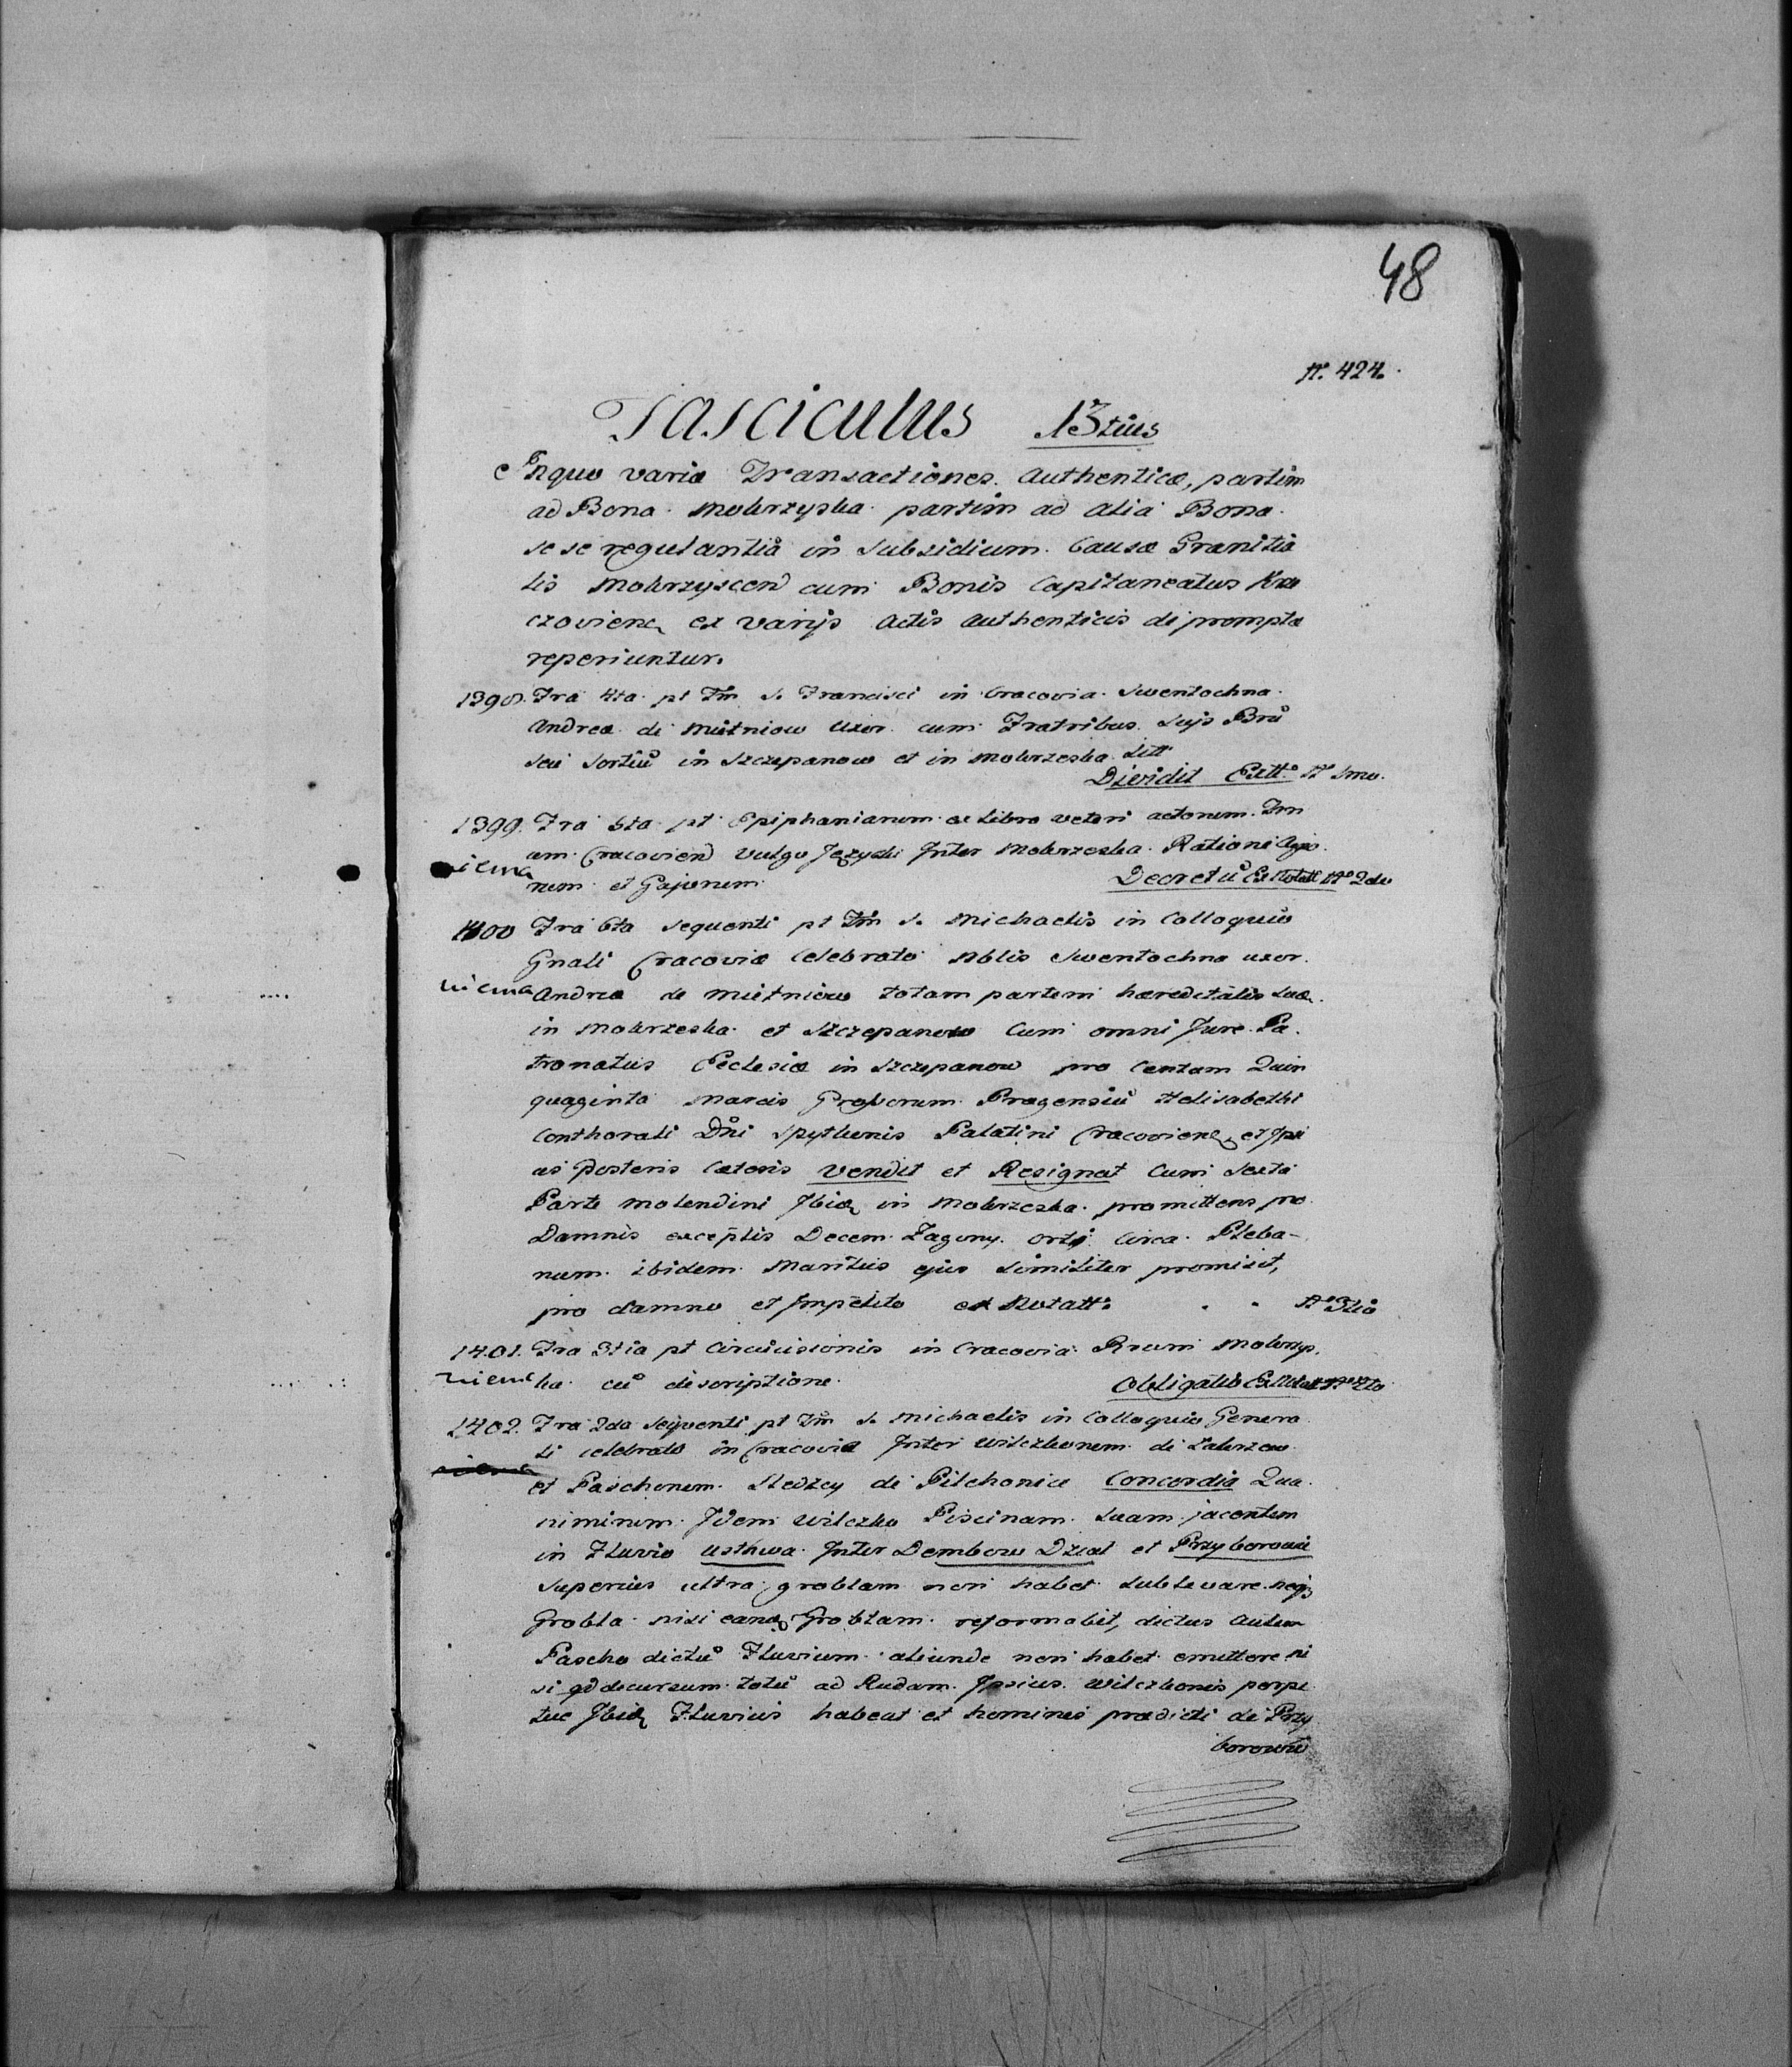 48
Nº. 424.
Fasciculus 13tius
In quo variæ Transactiones Authenticæ, partim
ad Bona Mokrzyska partim ad alia Bona
se se regulantia in Subsidium Causæ Granitia
lis Mokrzyscen cum Bonis Capitaneatus
czovien ex varijs Actis Authenticis de prompta
reperiuntur.
1390. Fra 4ta pt Fm S. Francisci in Cracovia Swentochna
Andreæ de Mietniow Uxor cum Fratribus Sujs
seu Sortiu in Szczepanow et in Mokrzeska Litt
Dividit Extt. Nº 1mo.
1399. Fra 6ta pt Epiphaniarum ex Libro veteri actorum
Cracovien vulgo Języski Inter Mokrzeska Ratione
niema num et Gajorum Decretū Ex Notatt Nº 2do
1400 Fra 6ta sequenti pt Fm S. Michaelis in Colloquio
Gnali Cracoviæ Celebrato Nblis Swentochna uxor
niema Andreæ de Mietniow totam partem hæreditatis suæ
in Mokrzeska et Szczepanow Cum omni Jure Pa
tronatus Ecclesiæ in Szczepanow pro Centum Quin
quaginta Marcis Grossorum Pragensiū Helisabethi
Conthorali Dni Spytkonis Palatini Cracovien et Ipsi
us Posteris Cæteris Vendit et Resignat Cum Sexta
Parte Molendini Ibid in Mokrzeska promittens pro
Damnis exceptis Decem Zagony orti circa Pleba-
num ibidem Maritus ejus Similiter promisit,
pro damno et Impetito ex Notatt. . . Nº 3tio
1401. Fra 3tia pt Circumcisionis in Cracovia Rrum Mokrzys
niema ka cū discriptione Obligatio Ex Notatt Nº 4to
1402. Fra 2da Sequenti pt Fm S. Michaelis in Colloquio Genera
li celebrato in Cracovia Inter Wilczkonem de
et Paschonem Stedzcy de Pilchonice Concordia Qua
niminum Idem Wilczko Piscinam Suam jacentem
in Fluvio Usthwa Inter Dembow Dzial et Przyborowie
Superius ultra groblam non habet Sublevare neqz
Grobla nisi eand Groblam reformabit, dictus Autem
Pascho dictū Fluvium aliunde non habet emittere ni
si qd decursum totū ad Rudam Ipsius Wilczkonis perpe
tue Ibid Fluvius habeat et homines prædicti de Przy
borowie